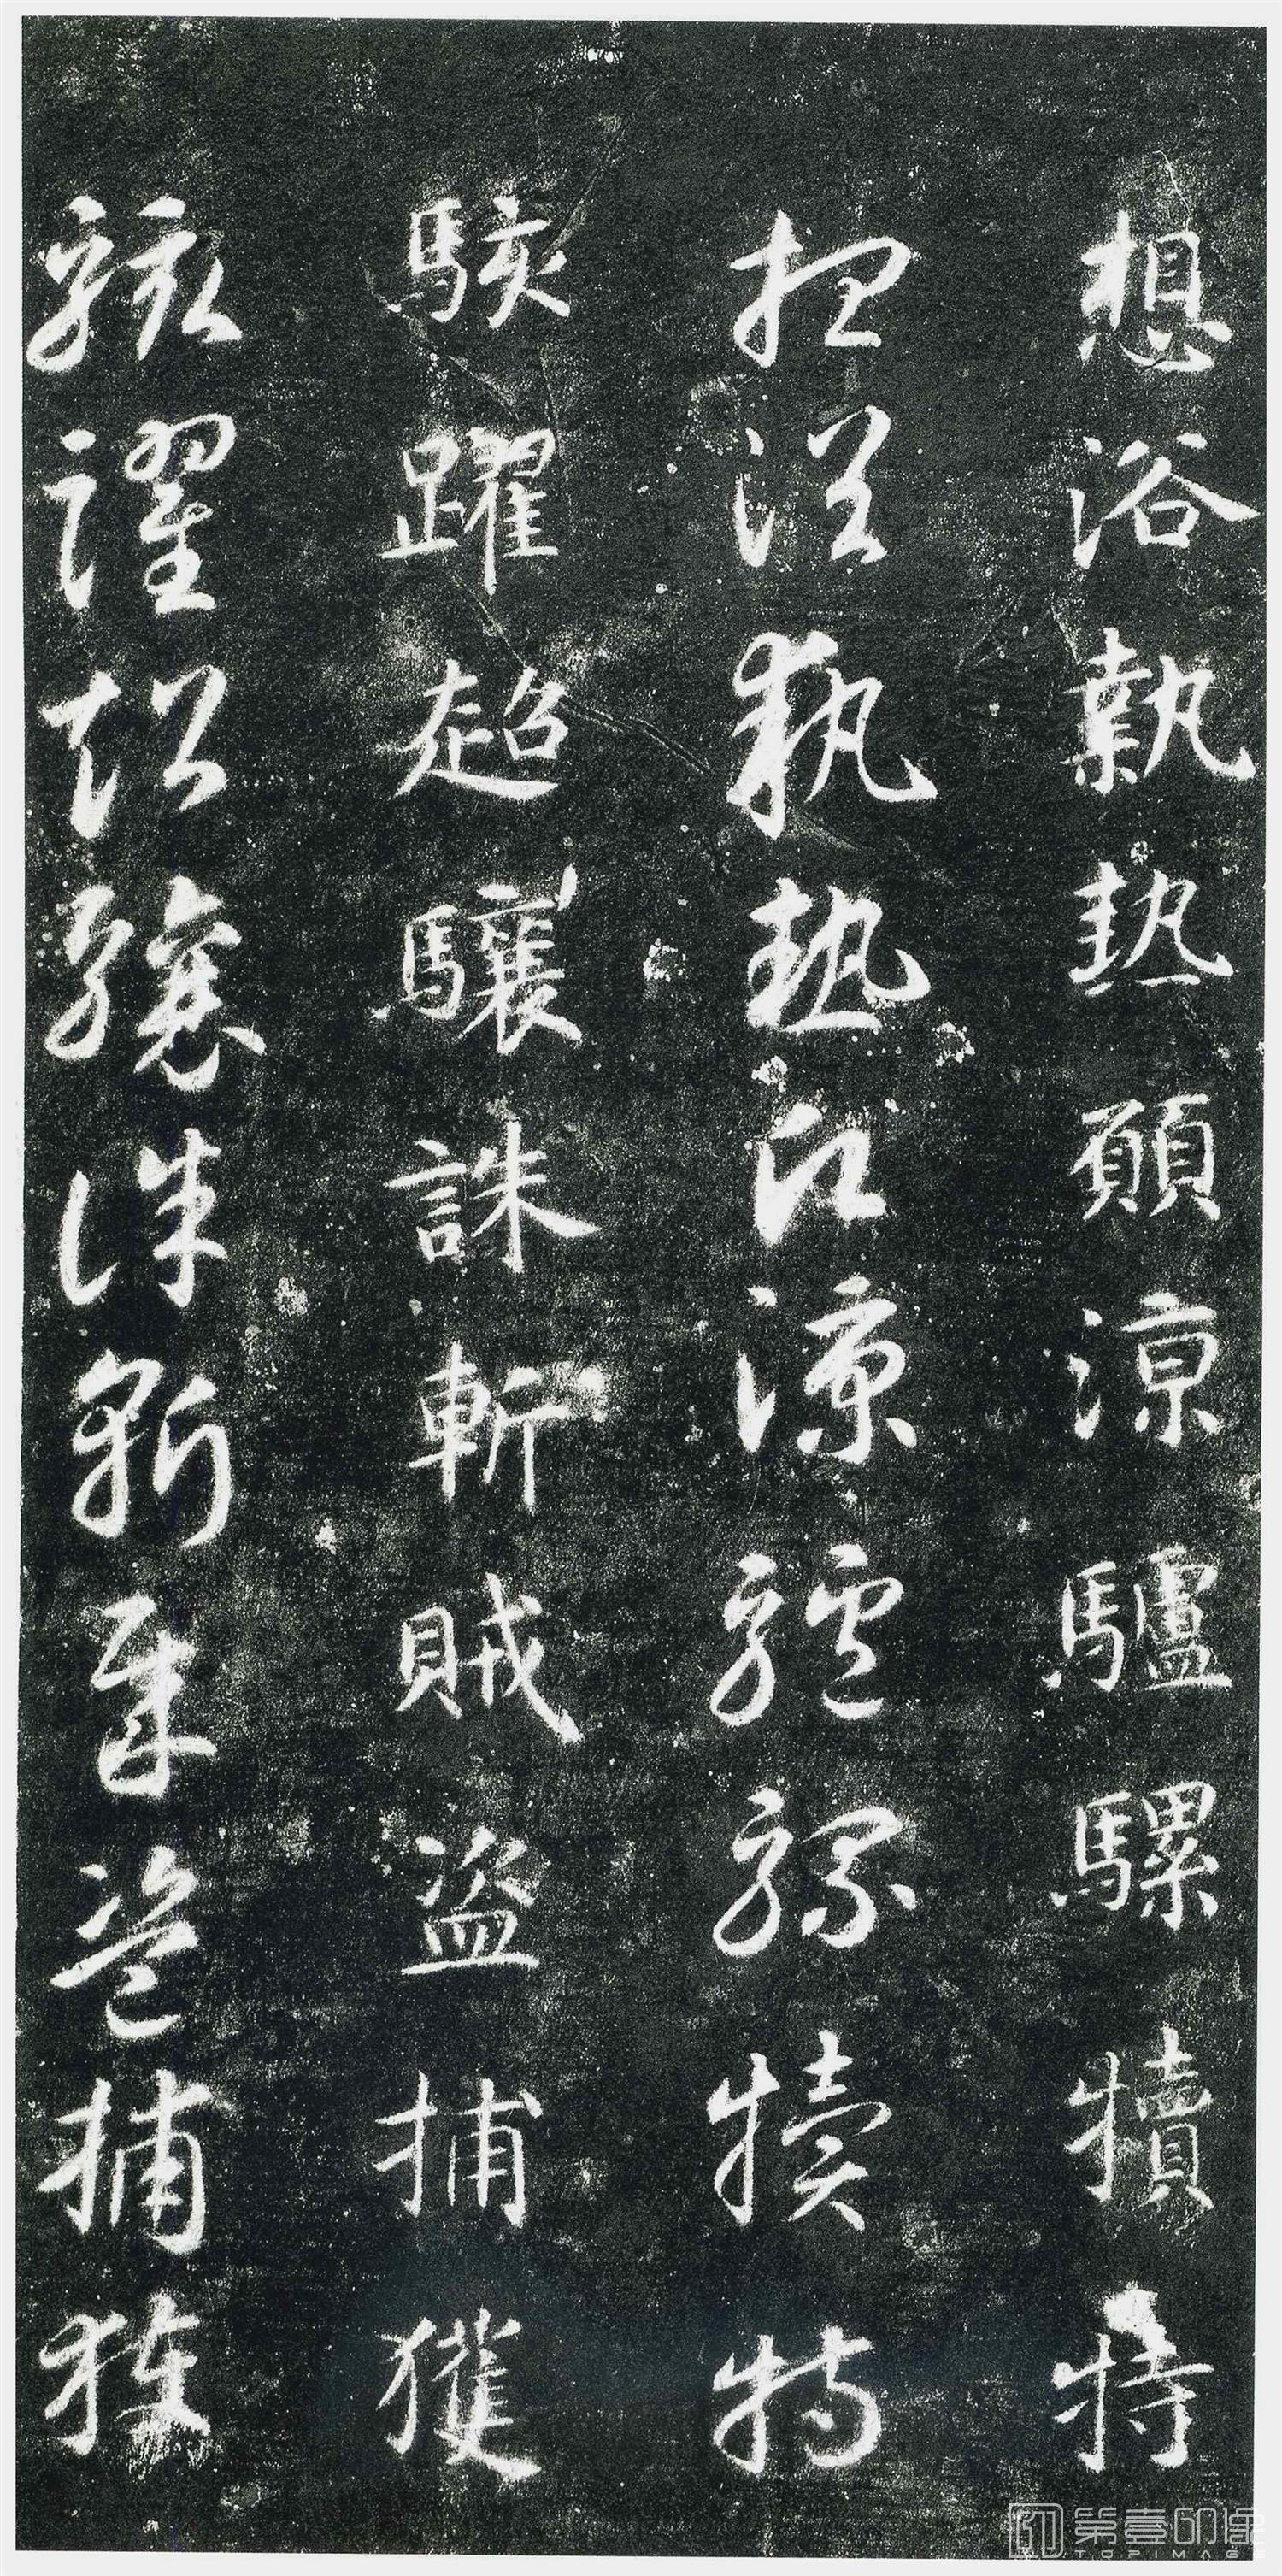 想浴執熱願涼驢騾犢特
想浴執熱願涼驢騾犢特
駭躍超驤誅斬賊盜捕獲
駭躍超驤誅斬賊盜捕獲
第壹印象
TOPIMAGE